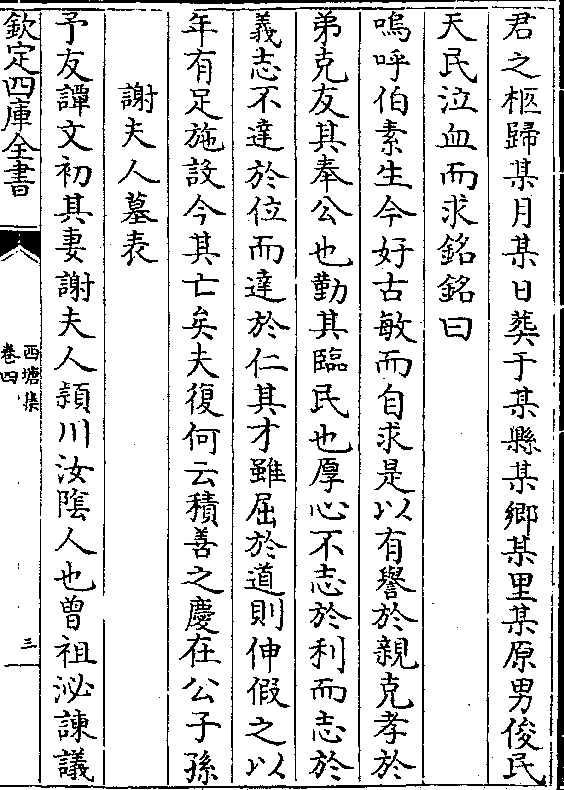 君之柩歸某月某日葬于某縣某鄉某里某原男俊民
天民泣血而求銘銘曰
嗚呼伯素生今好古敏而自求是以有譽於親克孝於
弟克友其奉公也勤其臨民也厚心不志於利而志於
義志不達於位而達於仁其才雖屈於道則伸假之以
年有足施設今其亡矣夫復何云積善之慶在公子孫
謝夫人墓表
予友譚文初其妻謝夫人潁川汝陰人也曾祖泌諫議
欽定四庫全書
西塘集
卷四
三